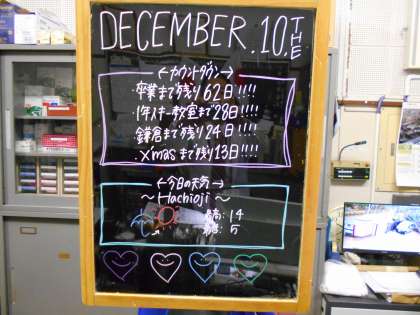 DECEMBER.10.THE
←カウントダウン→
・卒業まで残り62日!!!!
・1年スキー教室まで28日!!!!
・鎌倉まで残り24日!!!!
・X'masまで残り13日!!!!
←今日の天気→
～Hachioji～
最高: 14
最低: 5